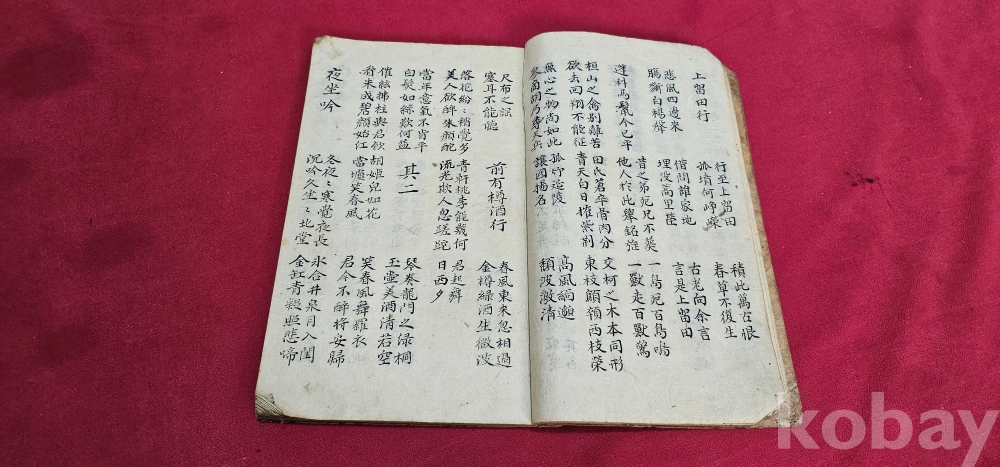 上留田行
行至上留田
孤墳何崢嶸
積此萬古恨
春草不復生
悲風四邊來
腸斷白楊聲
借問誰家地
埋沒蒿里塋
古老向余言
言是上留田
蓬科馬鬣今已平
昔之弟死兄不葬
他人於此舉銘旌
一鳥死百鳥鳴
一獸走百獸驚
桓山之禽別離苦
欲去回翔不能征
田氏卒骨肉分
青天白日摧紫荊
交柯之木本同形
東枝顦顇西枝榮
無心之物尚如此
參商胡乃尋天兵
孤竹延陵
讓國揚名
高風緬邈
頹波激清
尺布之謠
塞耳不能聽
前有樽酒行
春風東來忽相過
金樽綠酒生微波
落花紛〻稍覺多
美人欲醉朱顏酡
青軒桃李能幾何
流光欺人忽蹉跎
君起舞
日西夕
當年意氣不肯平
白髮如絲歎何益
其二
琴奏龍門之綠桐
玉壺美酒清若空
催絃拂柱與君飲
看朱成碧顏始紅
胡姬皃如花
當壚笑春風
笑春風舞羅衣
君今不醉將安歸
夜坐吟
冬夜〻寒覺夜長
沉吟久坐〻北堂
氷合井泉月入閨
金缸青凝照悲啼
kobay